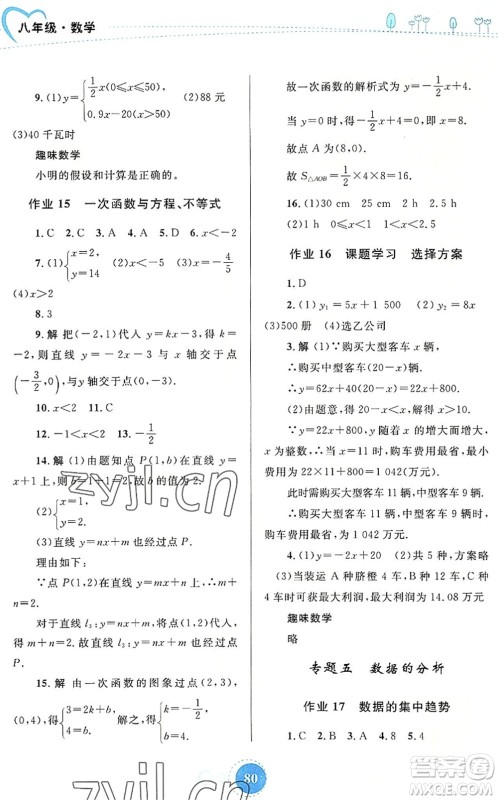 八年级·数学
9. (1) y={1/2 x(0≤x≤50), 0.9x-20(x>50). (2)88 元
(3)40 千瓦时
趣味数学
小明的假设和计算是正确的。
作业 15 一次函数与方程、不等式
1. C 2. C 3. A 4. A 5. D 6. C
7. (1){x=2, y=14 (2)x<-5 (3)x<-4/5
(4)x>2
8. 3
9. 解 把(-2,1)代入 y=kx-3,得 k=-2,所以直线 y=-2x-3 与 x 轴交于点(-3/2,0),与 y 轴交于点(0,-3).
10. x<2 11. C
12. -1<x<2 13. -1/2
14. 解 (1)由题知点 P(1,b)在直线 y=x+1 上,则 b=1+1=2,故 b 的值为 2.
(2){x=1, y=2.
(3)直线 y=nx+m 也经过点 P.
理由如下:
∵点 P(1,2)在直线 y=mx+n 上,
∴m+n=2.
对于直线 l₃:y=nx+m,将点(1,2)代入,得 m+n=2.故直线 l₃:y=nx+m 也经过点 P.
15. 解 由一次函数的图象过点(2,3),(0,4),得{3=2k+b, 4=b. 解得{k=-1/2, b=4.
故一次函数的解析式为 y=-1/2 x+4.
当 y=0 时,x=8.
故点 A 为(8,0).
故 S△AOB=1/2×4×8=16.
16. (1)30 cm 25 cm 2 h 2.5 h
(2)1 h 0≤x<1
作业 16 课题学习 选择方案
1. D
2. (1)y₁=5x+1 500 (2)y₂=8x
(3)500 册 (4)选乙公司
3. 解 (1)∵购买大型客车 x 辆,
∴购买中型客车(20-x)辆.
∴y=62x+40(20-x)=22x+800.
(2)由题意,得 20-x<x,得 x>10.
∵y=22x+800,y 随 x 的增大而增大,x 为整数,∴当 x=11 时,购车费用最小,最小费用为 22×11+800=1 042(万元).
此时需购买大型客车 11 辆,中型客车 9 辆,购车费用最省,为 1 042 万元.
4. (1)y=-2x+20 (2)共 5 种方案,方案略
(3)当装运 A 种脐橙 4 车,B 种脐橙 12 车,C 种脐橙 4 车时利润最大,最大利润为 14.08 万元
趣味数学
略
专题五 数据的分析
作业 17 数据的集中趋势
1. C 2. B 3. A 4. 8 5. 4
80
zyjl.cn
zyjl.cn
答案圈
MXQE.COM